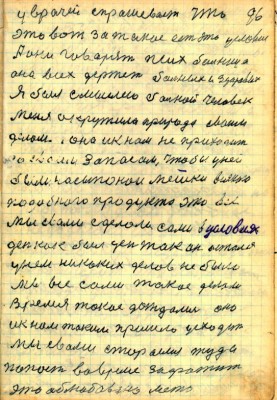 у врачей спрашевает что 96
это вот за такие есть это условия
А они говорят псих болница
она всех держет болных и здоровых
Я был смыслено болной человек
меня окружила природа своим
делом. она ик нам не приходит
запасам, чтобы у ней
были частоном мешки
подобного продукта это всё
мы свами сделоли сами в условиях
ден как был ден так он остался
у нем никаких делов не было
мы все сами такое делали
Время такое дождалися оно
ик нам таким пришло уходит
мы свами старалися туды
попасть вовремя захватить
это облюбована место